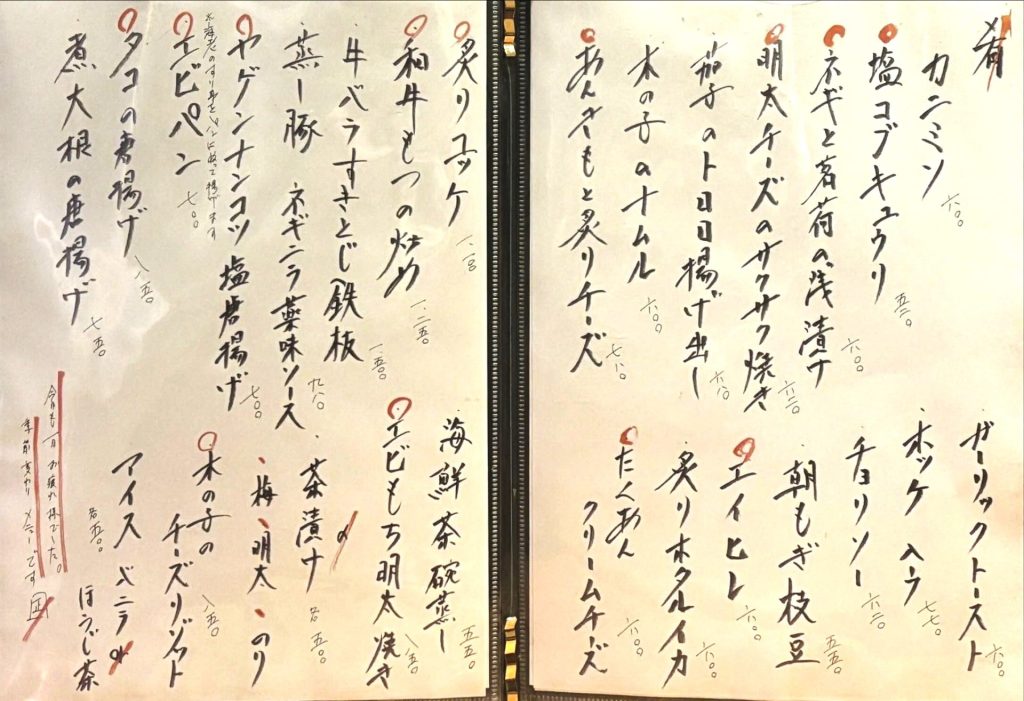 肴
カニミソ 六〇〇
塩コブキュウリ 五二〇
ネギと茗荷の浅漬ケ 六〇〇
明太チーズのサクサク焼き 六八〇
茄子のトロロ揚げ出し 六八〇
木の子のナムル 六〇〇
あんきもと炙りチーズ 七八〇
ガーリックトースト 六〇〇
ホッケ ハーフ 七七〇
チョリソー 六二〇
朝もぎ枝豆 五五〇
エイヒレ 六〇〇
炙りホタルイカ
たくあんクリームチーズ 六〇〇
炙りユッケ
和牛もつの炒め 一、二五〇
牛バラすきとじ鉄板 一、一五〇
蒸し豚 ネギニラ薬味ソース 九八〇
ヤゲンナンコツ塩唐揚げ 七〇〇
エビパン 七〇〇
※海老のすり身をパンにぬって揚げます
タコの唐揚げ 八五〇
煮大根の唐揚げ 七五〇
海鮮茶碗蒸し 五五〇
エビもち明太焼き 八五〇
茶漬ケ 各 五五〇
・梅・明太・のり
木の子の
チーズリゾット 八五〇
アイス バニラ or ほうじ茶
今月も一月お疲れ様でした。
季節変わりメニューです